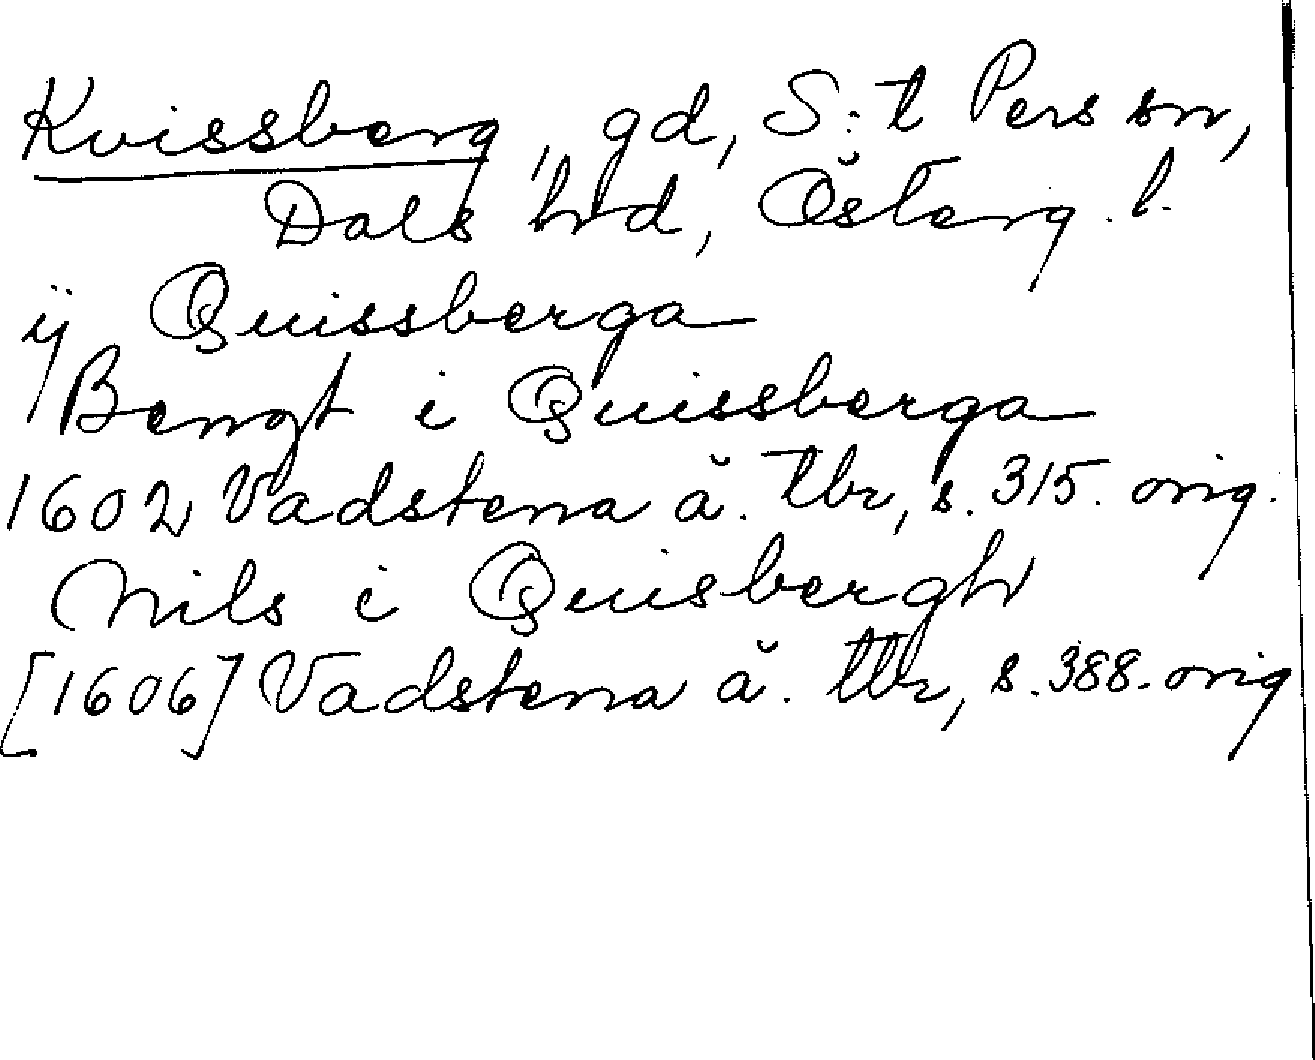 Kvissberg, gd, S:t Pers sn,
Dals hd, Österg. l.
ij Quissberga
Bengt i Quissberga
1602 Vadstena ä. tbr, s. 315. orig.
Nils i Quisbergh
[1606] Vadstena ä. tbr, s. 388. orig